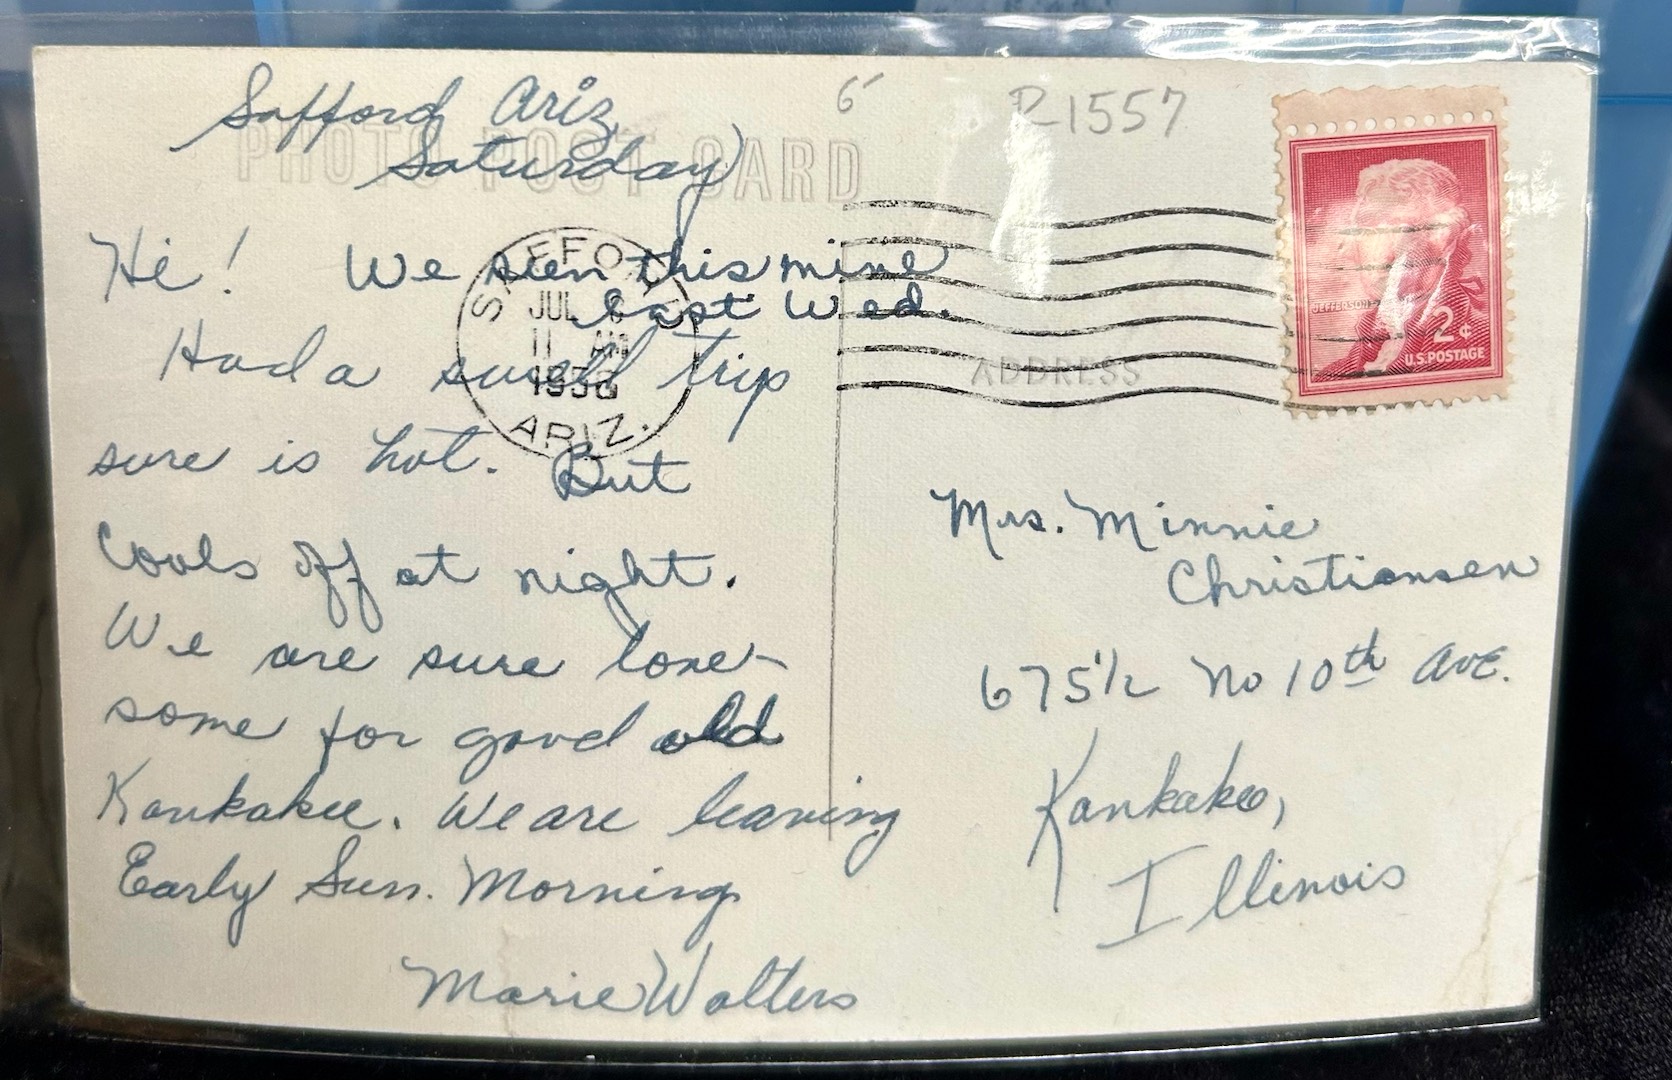 6
R1557
PHOTO POST CARD
Safford Ariz
Saturday
Hi! We seen this mine
Last Wed.
Had a swell trip
sure is hot. But
Cools off at night.
We are sure lone-
some for good old
Kankakee. We are leaving
Early Sun. Morning
Marie Walters
SAFFORD
JUL
11 AM
ARIZ.
JEFFERSON
2¢
U.S. POSTAGE
ADDRESS
Mrs. Minnie
Christiansen
675 1/2 No 10th Ave.
Kankakee,
Illinois